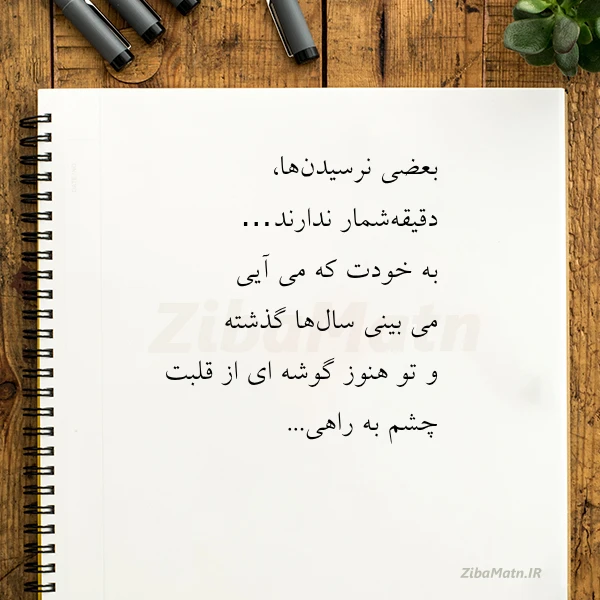 بعضی نرسیدن‌ها،
دقیقه‌شمار ندارند...
به خودت که می آیی
می بینی سال‌ها گذشته
و تو هنوز گوشه ای از قلبت
چشم به راهی...
ZibaMatn
ZibaMatn.IR